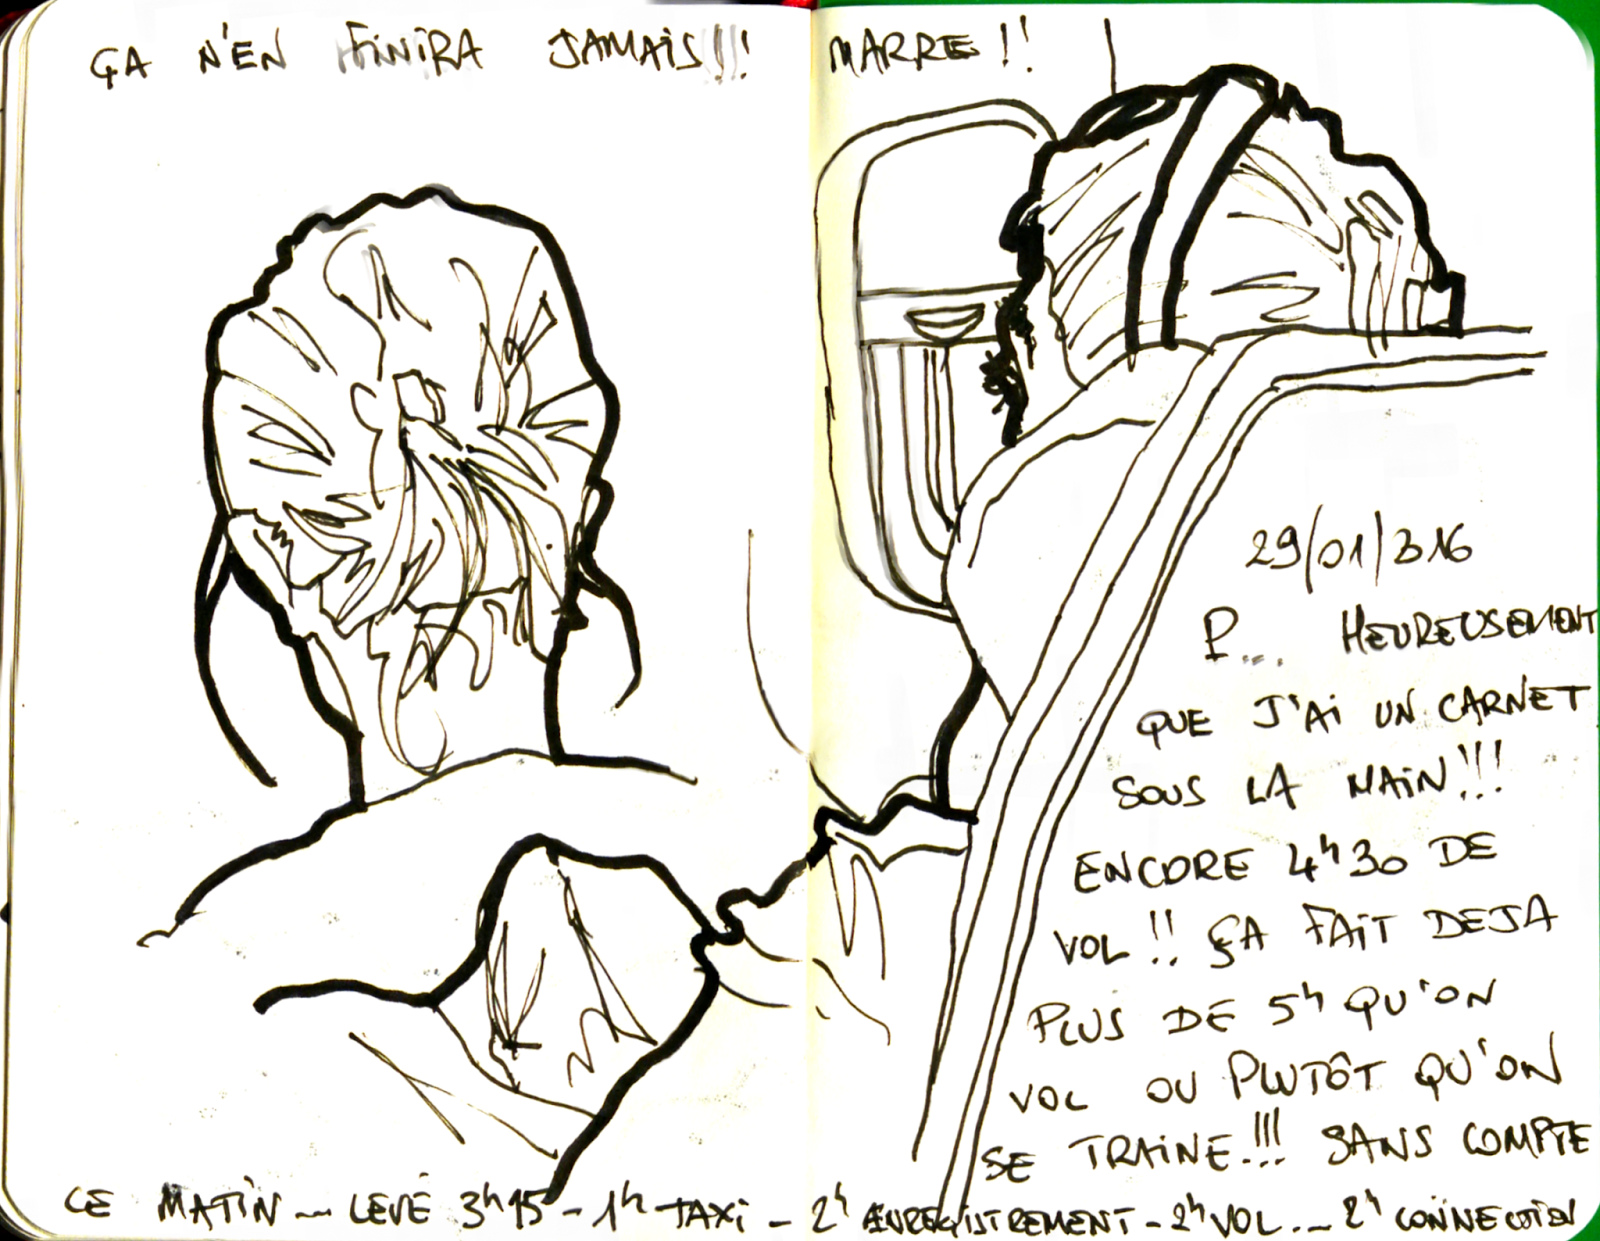 ÇA N'EN FINIRA JAMAIS!!! MARRE!!
29/01/316
P... HEUREUSEMENT
QUE J'AI UN CARNET
SOUS LA MAIN!!!
ENCORE 4h30 DE
VOL!! ÇA FAIT DEJA
PLUS DE 5h QU'ON
VOL OU PLUTÔT QU'ON
SE TRAINE!!! SANS COMPTE
CE MATIN... LEVÉ 3h15 - 1h TAXI - 2h ENREGISTREMENT - 2h VOL... 2h CONNECTION